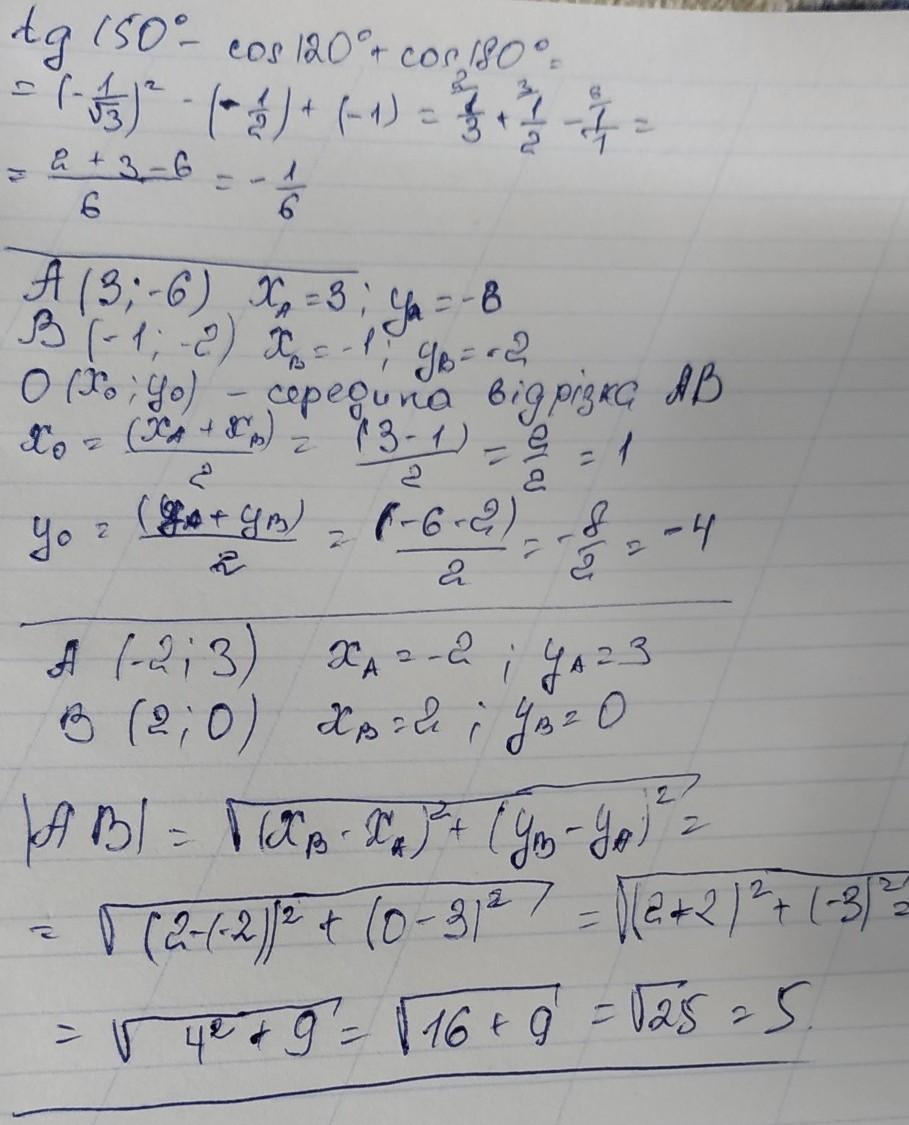 tg 150° - cos 120° + cos 180° =
= (-1/√3)² - (-1/2) + (-1) = ²1/3 + ³1/2 - ⁶1/1 =
= (2 + 3 - 6)/6 = -1/6
A (3; -6) x_A = 3; y_A = -8
B (-1; -2) x_B = -1; y_B = -2
O (x₀; y₀) - середина відрізка AB
x₀ = (x_A + x_B)/2 = (3-1)/2 = 2/2 = 1
y₀ = (y_A + y_B)/2 = (-6-2)/2 = -8/2 = -4
A (-2; 3) x_A = -2; y_A = 3
B (2; 0) x_B = 2; y_B = 0
|AB| = √((x_B - x_A)² + (y_B - y_A)²) =
= √((2-(-2))² + (0-3)²) = √((2+2)² + (-3)²) =
= √(4² + 9) = √(16 + 9) = √25 = 5.